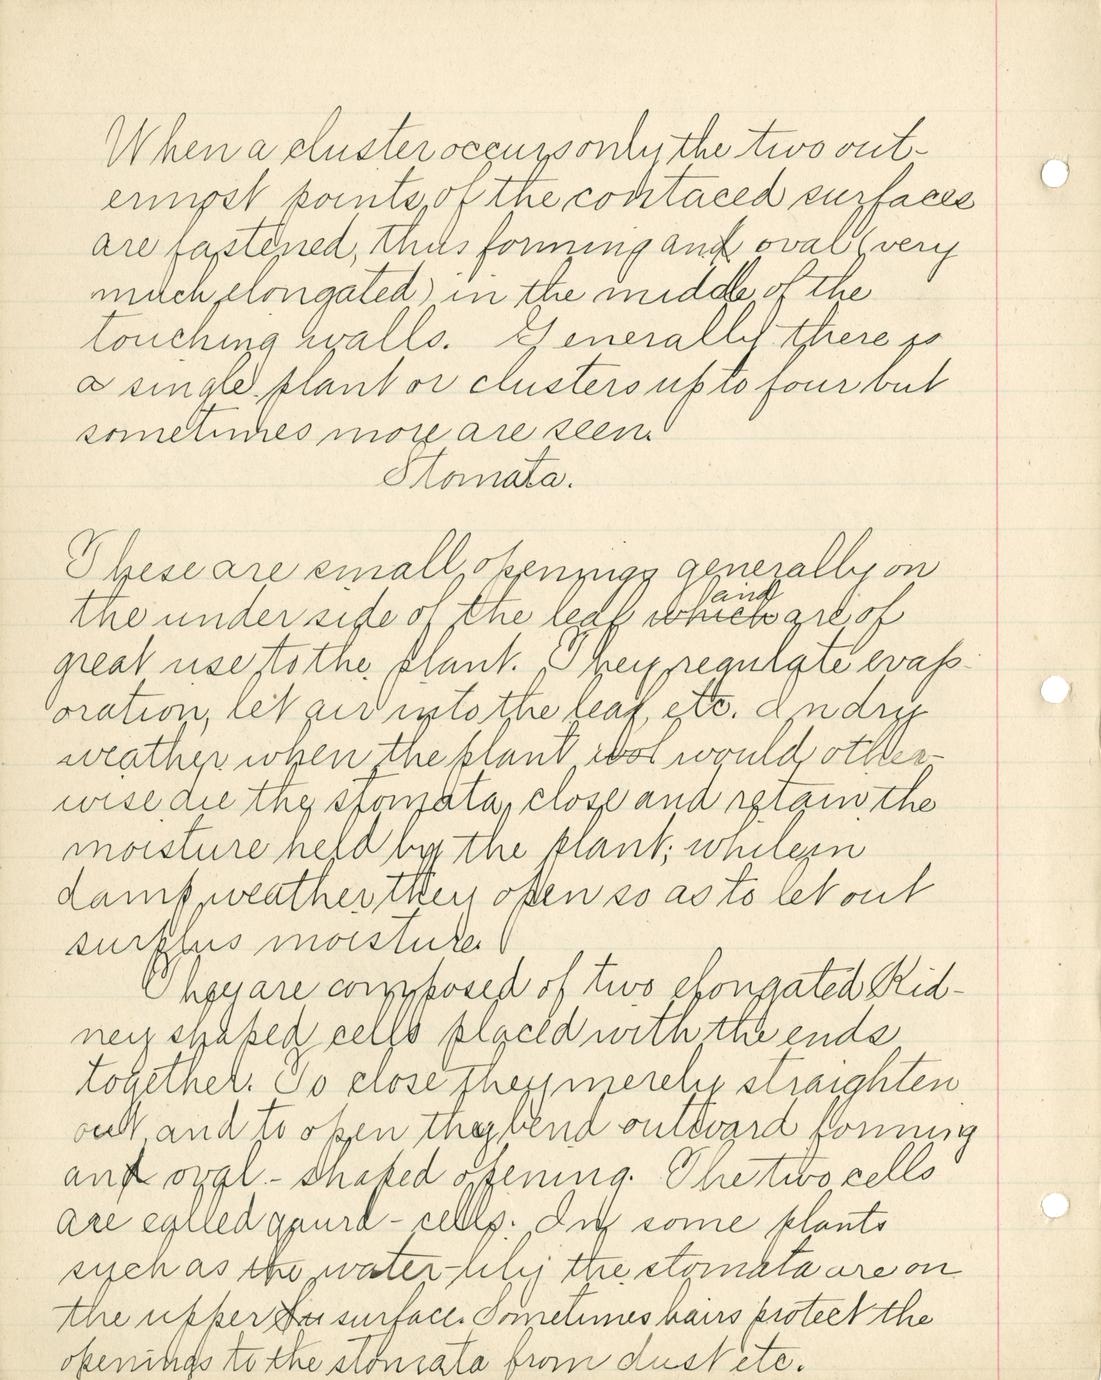 When a cluster occurs only the two out-
ermost points of the contaced surfaces
are fastened, thus forming an oval (very
much elongated) in the middle of the
touching walls. Generally there is
a single plant or clusters up to four but
sometimes more are seen.
Stomata.
These are small openings generally on
and
the under side of the leaf which are of
great use to the plant. They regulate evap-
oration, let air into the leaf, etc. In dry
weather when the plant wol would other-
wise die the stomata close and retain the
moisture held by the plant; while in
damp weather they open so as to let out
surplus moisture.
They are composed of two elongated Kid-
ney shaped cells placed with the ends
together. To close they merely straighten
out and to open they bend outward forming
an oval-shaped opening. The two cells
are called gaurd-cells. In some plants
such as the water-lily the stomata are on
the upper su surface. Sometimes hairs protect the
openings to the stomata from dust etc.